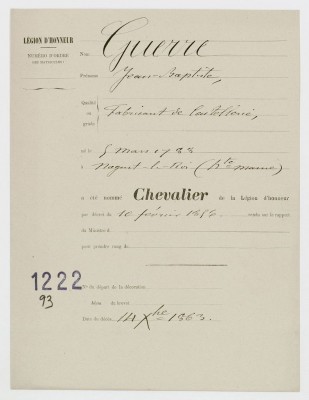 LÉGION D'HONNEUR
NUMÉRO D'ORDRE
DES MATRICULES
Nom Guerre
Prénoms Jean-Baptiste,
Qualité
ou
grade
Fabricant de Coutellerie,
né le 5 mars 1788
à Nogent-le-Roi (Hte Marne)
a été nommé Chevalier de la Légion d'honneur
par décret du 10 février rendu sur le rapport
du Ministre d
pour prendre rang du
1222
93
N° de départ de la décoration
Idem du brevet
Date du décès, 14 Xbre 1863.